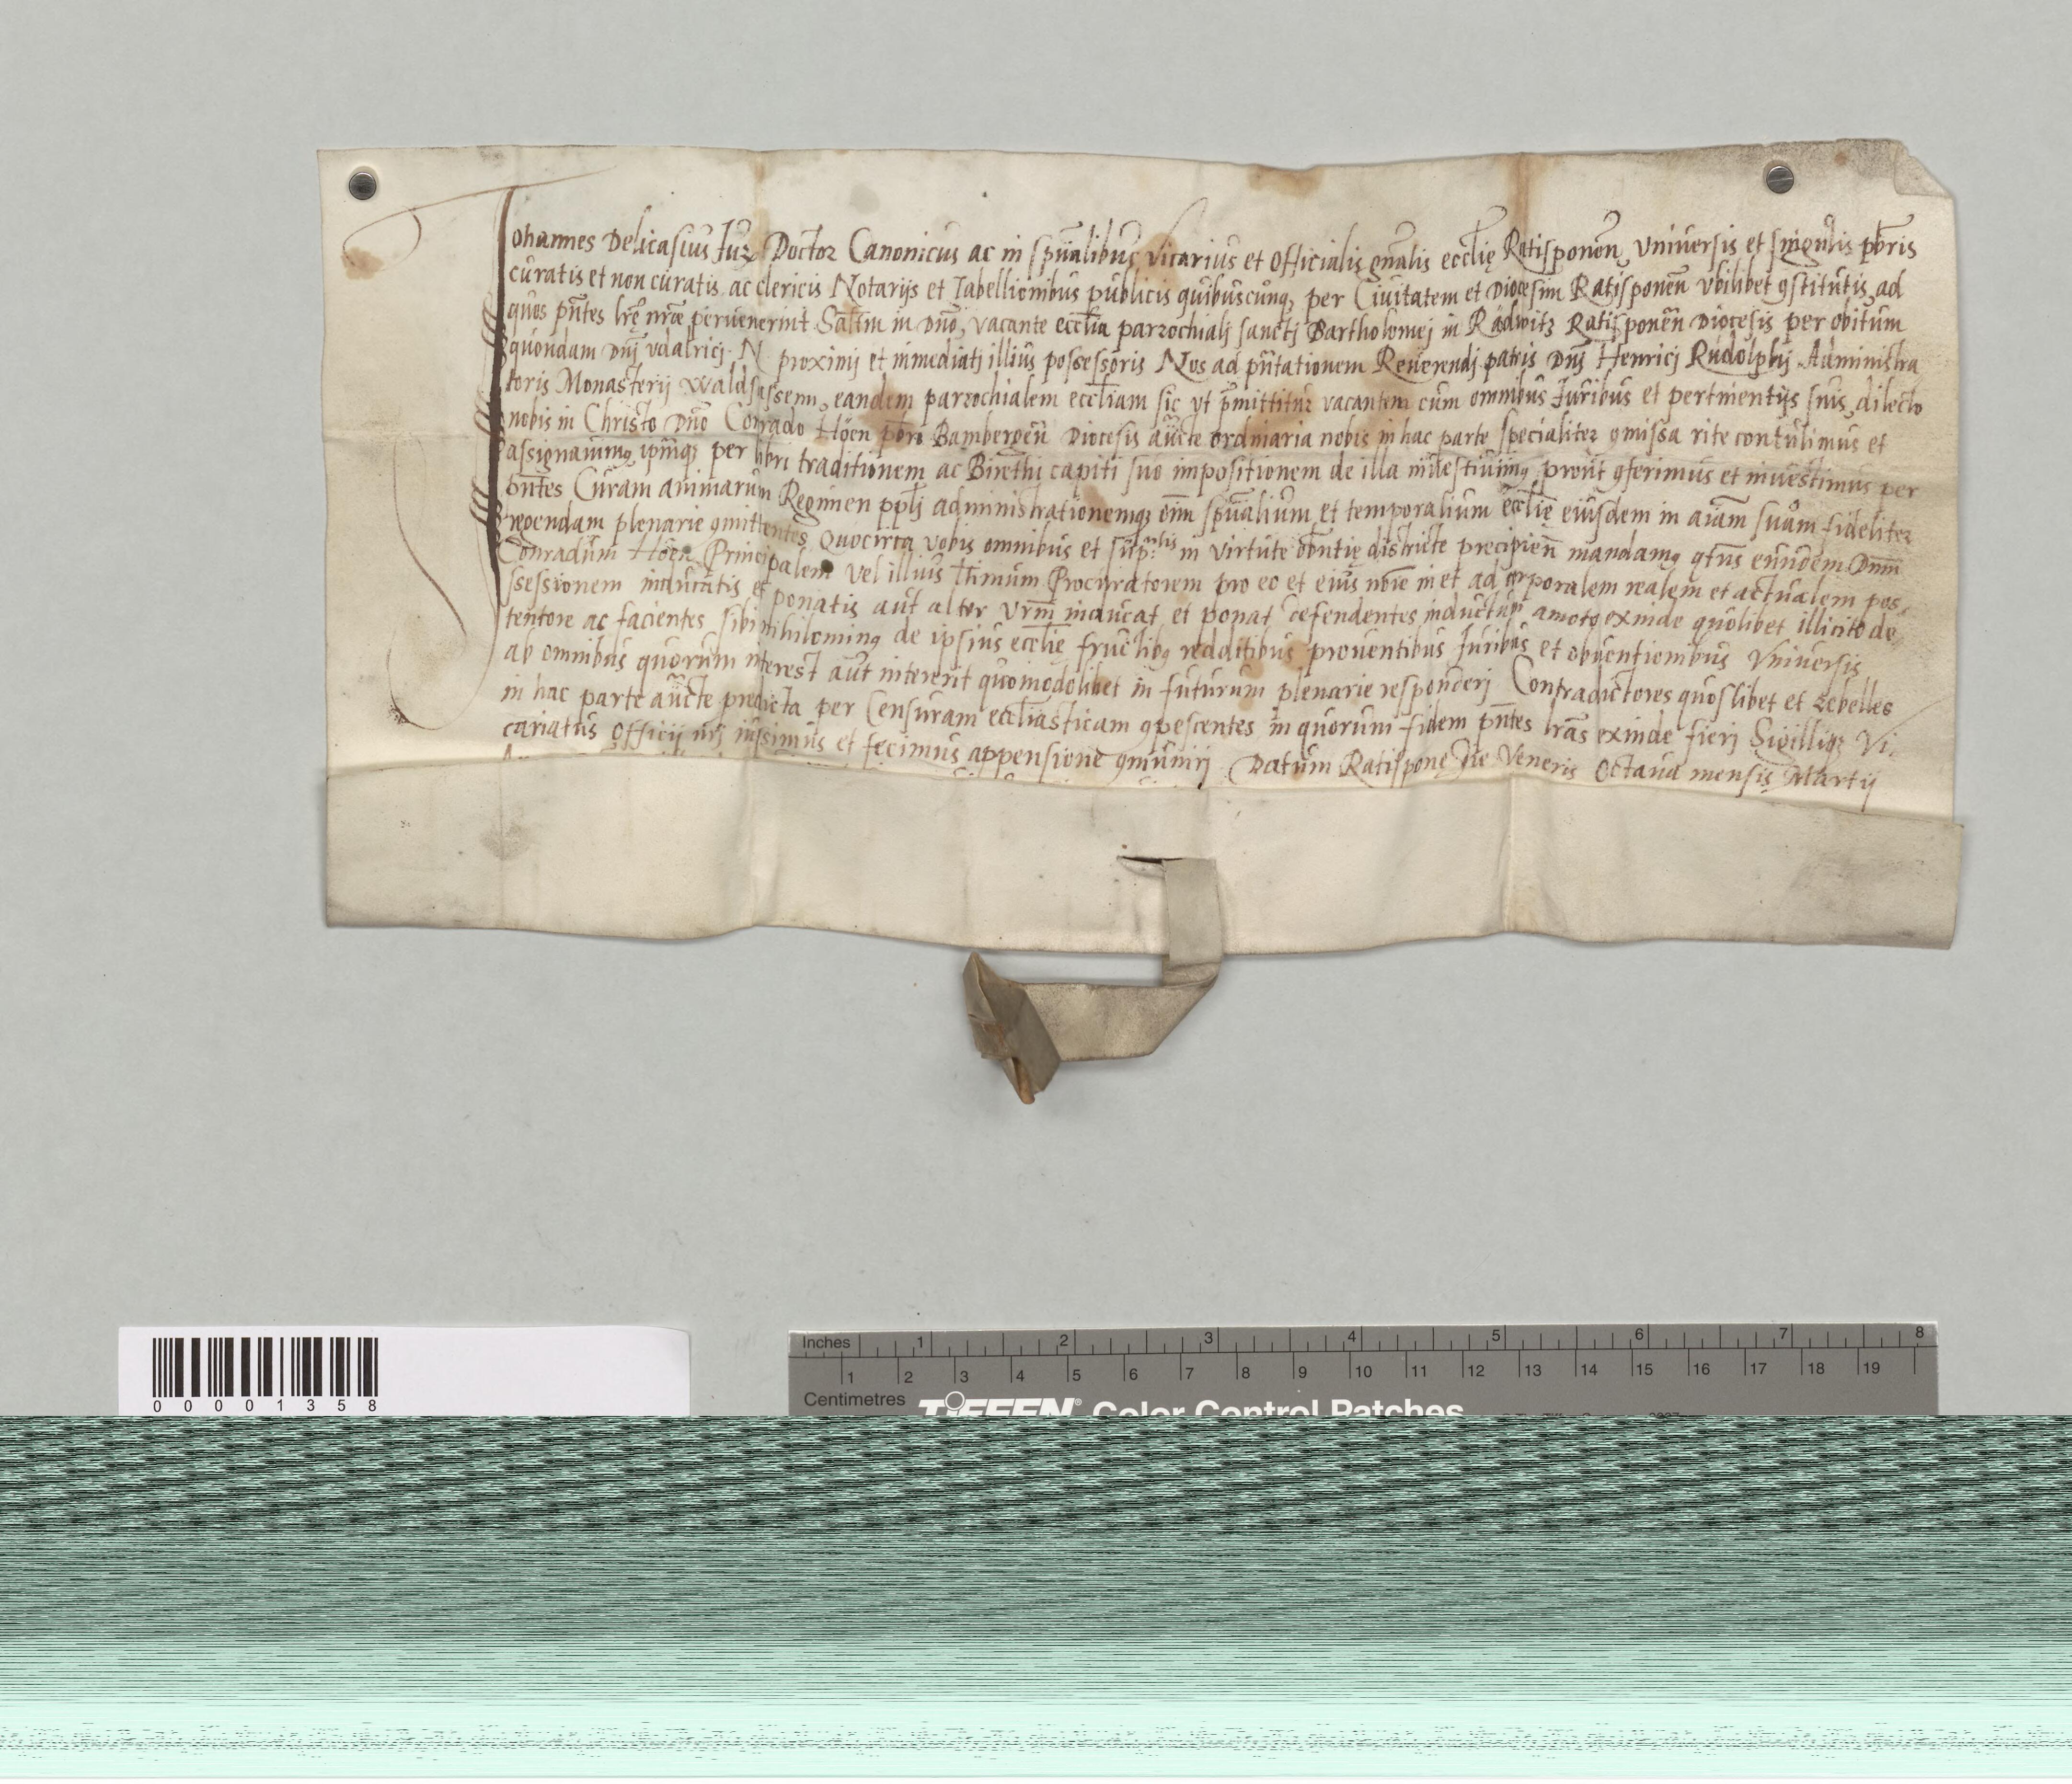 Johannes Delicasius Iuꝝ Doctor Canonicus ac in sp̃ualibus vicarius et Officialis gñalis eccl̃ię Ratisponeñ, Vniuersis et singulis pb̃ris
curatis et non curatis ac clericis Notarijs et Tabellionibus publicis quibuscunqꝫ per Ciuitatem et Diocesim Ratisponeñ vbilibet ꝯstitutis ad
quos pñtes lr̃ę nr̃æ peruenerint Saltm̃ in Dño, vacante eccl̃ia parrochialj sanctj Bartholomej in Radwitz Ratisponeñ Diocesis per obitum
quondam Dñj vdalricj. N. proximj et inmediatj illius possessoris Nos ad pñtationem Reuerendj patris Dñj Henricj Rudolphij Administra
toris Monasterij Waldsassenñ, eandem parrochialem eccl̃iam sic vt p̃mittitur vacantem cum omnibus Iuribus et pertinentijs suis, dilecto
nobis in Christo Dño Conrado Höen pb̃ro Bambergeñ Diocesis auc̃te ordinaria nobis in hac parte specialiter ꝯmissa rite contulimus et
assignauimꝯ ipm̃qꝫ per libri traditionem ac Birethi capiti suo impositionem de illa inuestiuimꝯ prout ꝯferimus et inuestimus per
pñtes Curam animarum Regimen pp̃lj administrationemqꝫ om̃ sp̃ualium et temporalium eccl̃ię eiusdem in aĩam suam fideliter
regendam plenarie ꝯmittentes Quocirca vobis omnibus et sup̃tis in virtute obñtię districte precipieñ mandamꝯ qt̃ns eundem Dñm
Conradum Höen Principalem vel illius ltĩmum Procuratorem pro eo et eius noĩe in et ad corporalem realem et actualem pos,
ssessionem inducatis et ponatis aut alter vrm̃ inducat et ponat defendentes inductum amoto exinde quolibet illicito de,
tentore ac facientes sibi nihilominꝯ de ipsius eccl̃ię fructibꝯ redditibus prouentibus Iuribus et obuentionibus Vniuersis
ab omnibus quorum interest aut intererit quomodolibet in futurum plenarie responderj Contradictores quoslibet et rebelles
in hac parte auc̃te predicta per Censuram eccl̃iasticam ꝯpescentes in quorum fidem pñtes lr̃as exinde fieri Sigilliqꝫ Vi,
cariatus Officij nr̃j iussimus et fecimus appensione ꝯmunirj Datum Ratisponę Die Veneris Octaua mensis Martij
00001358
Inches 1 2 3 4 5 6 7 8
1 2 3 4 5 6 7 8 9 10 11 12 13 14 15 16 17 18 19
Centimetres
TIFFEN® Color Control Patches